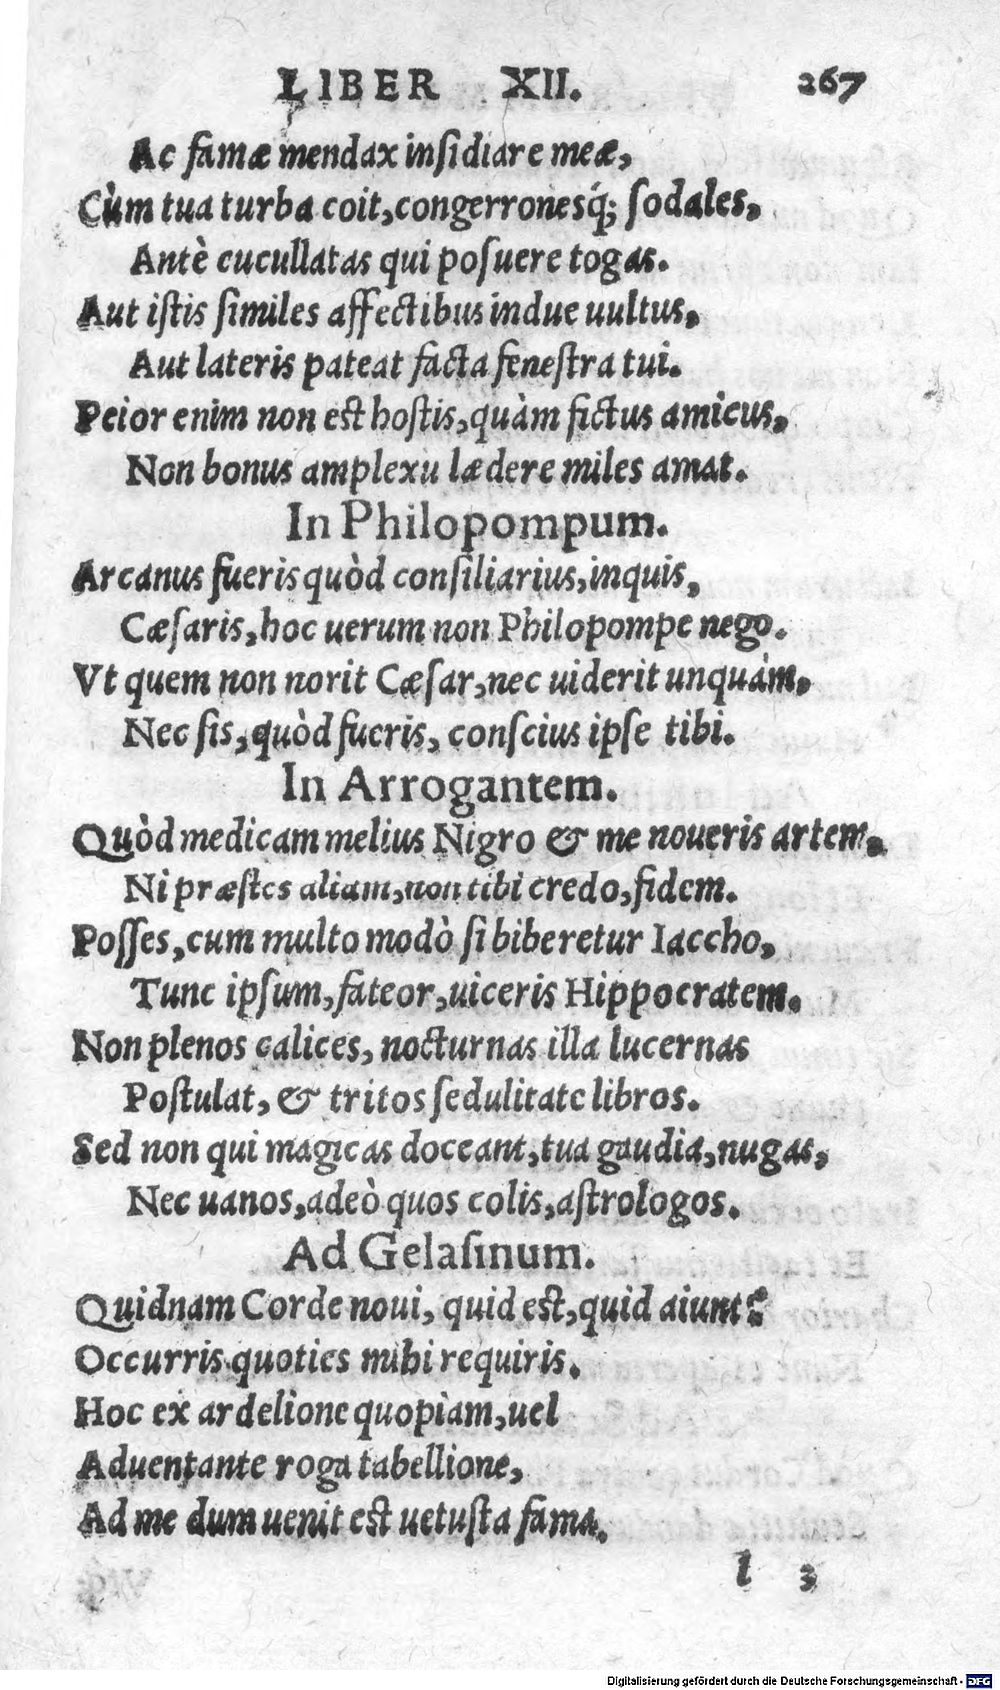 LIBER XII. 267
Ac famæ mendax insidiare meæ,
Cùm tua turba coit, congerronesq́; sodales,
Antè cucullatas qui posuere togas.
Aut istis similes affectibus indue uultus,
Aut lateris pateat facta fenestra tui.
Peior enim non est hostis, quàm fictus amicus,
Non bonus amplexu lædere miles amat.
In Philopompum.
Arcanus fueris quòd consiliarius, inquis,
Cæsaris, hoc uerum non Philopompe nego.
Vt quem non norit Cæsar, nec uiderit unquàm,
Nec sis, quòd fueris, conscius ipse tibi.
In Arrogantem.
Quòd medicam melius Nigro & me noueris artem,
Ni præstes aliam, non tibi credo, fidem.
Posses, cum multo modò si biberetur Iaccho,
Tunc ipsum, fateor, uiceris Hippocratem.
Non plenos calices, nocturnas illa lucernas
Postulat, & tritos sedulitate libros.
Sed non qui magicas doceant, tua gaudia, nugas,
Nec uanos, adeò quos colis, astrologos.
Ad Gelasinum.
Quidnam Corde noui, quid est, quid aiunt?
Occurris quoties mihi requiris.
Hoc ex ardelione quopìam, uel
Aduentante roga tabellione,
Ad me dum uenit est uetusta fama.
l 3
Digitalisierung gefördert durch die Deutsche Forschungsgemeinschaft - DFG